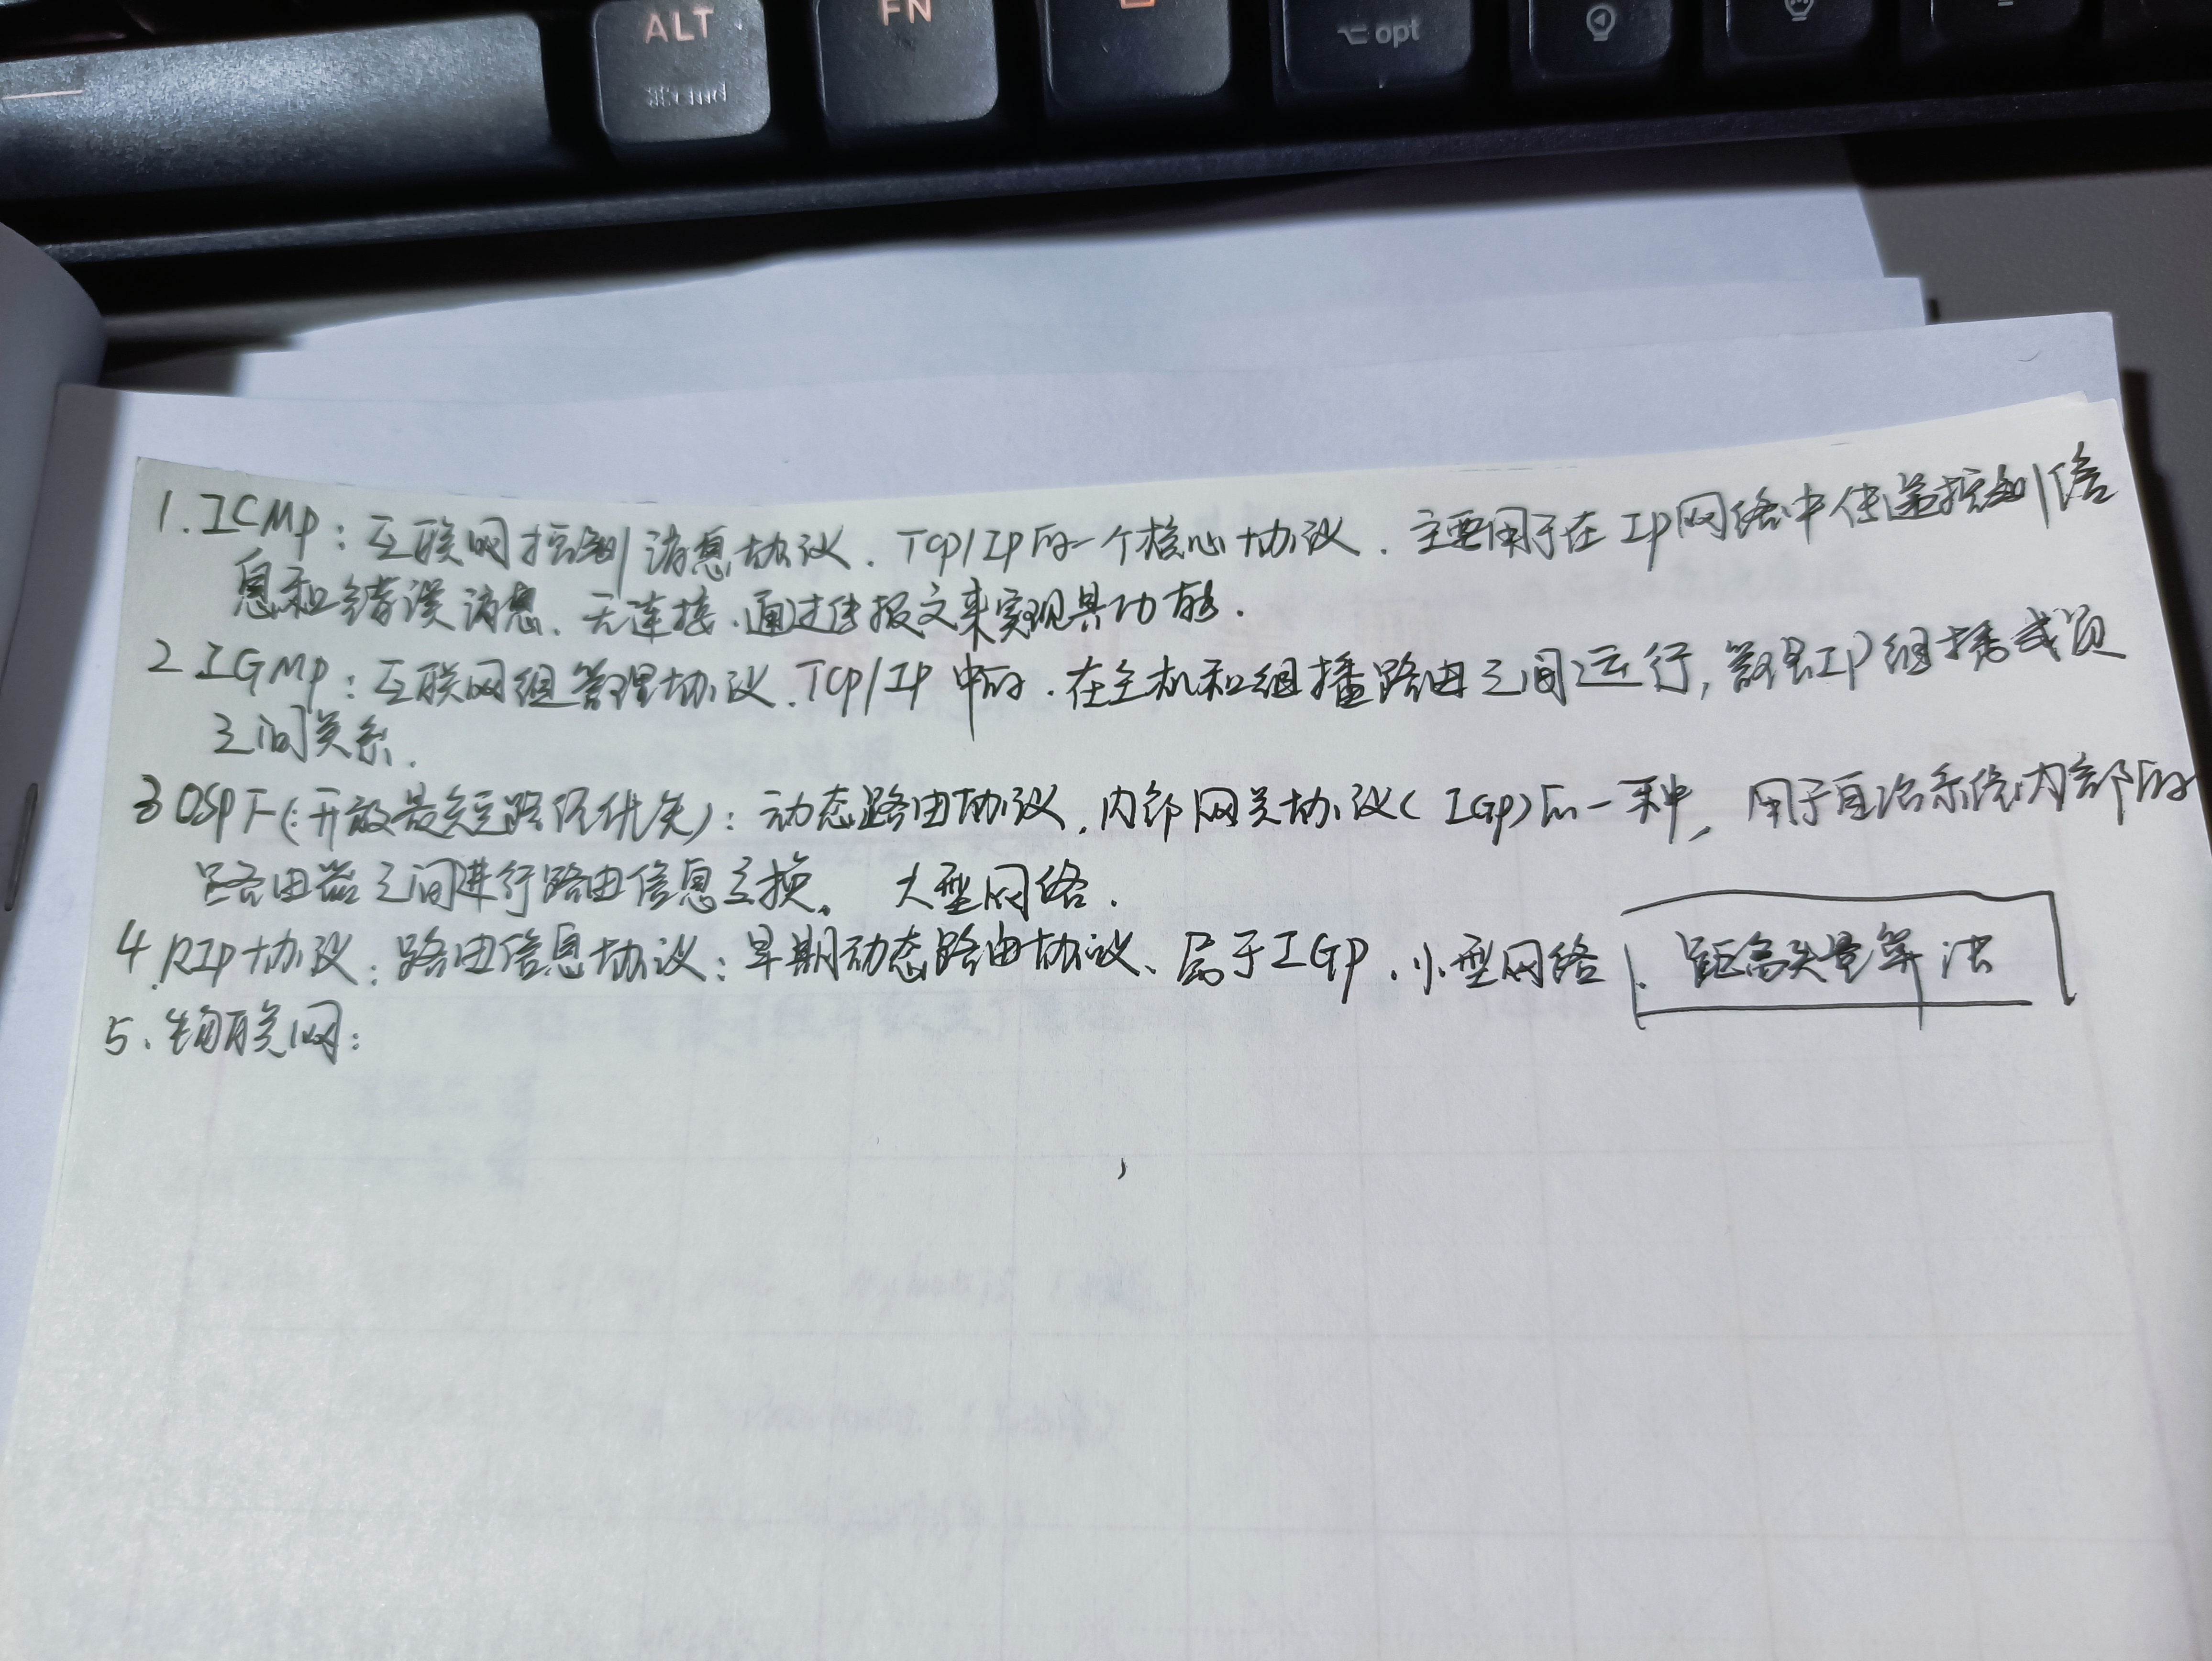 ALT
⌘cmd
FN
⌥ opt
1. ICMP：互联网控制消息协议. TCP/IP的一个核心协议. 主要用于在IP网络中传递控制信
息和错误消息. 无连接. 通过传报文来实现其功能.
2 IGMP：互联网组管理协议. TCP/IP中的. 在主机和组播路由之间运行, 管理IP组播成员
之间关系.
3 OSPF(开放最短路径优先)：动态路由协议, 内部网关协议(IGP)的一种, 用于自治系统内部的
路由器之间进行路由信息交换。 大型网络.
4. RIP协议：路由信息协议：早期动态路由协议、属于IGP、小型网络、距离矢量算法
5、物联网：